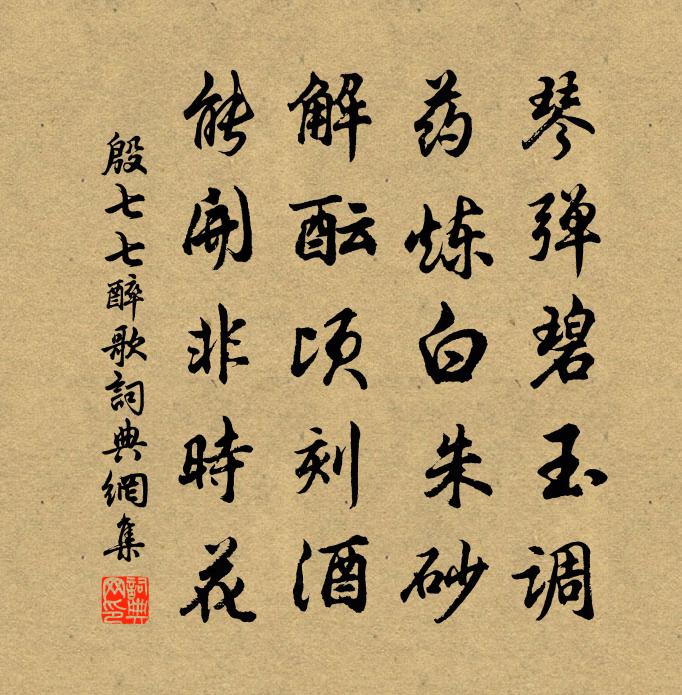 琴弹碧玉调
药炼白朱砂
解酝顷刻酒
能開非時花
殷七七醉歌詞典網集
詞典网印